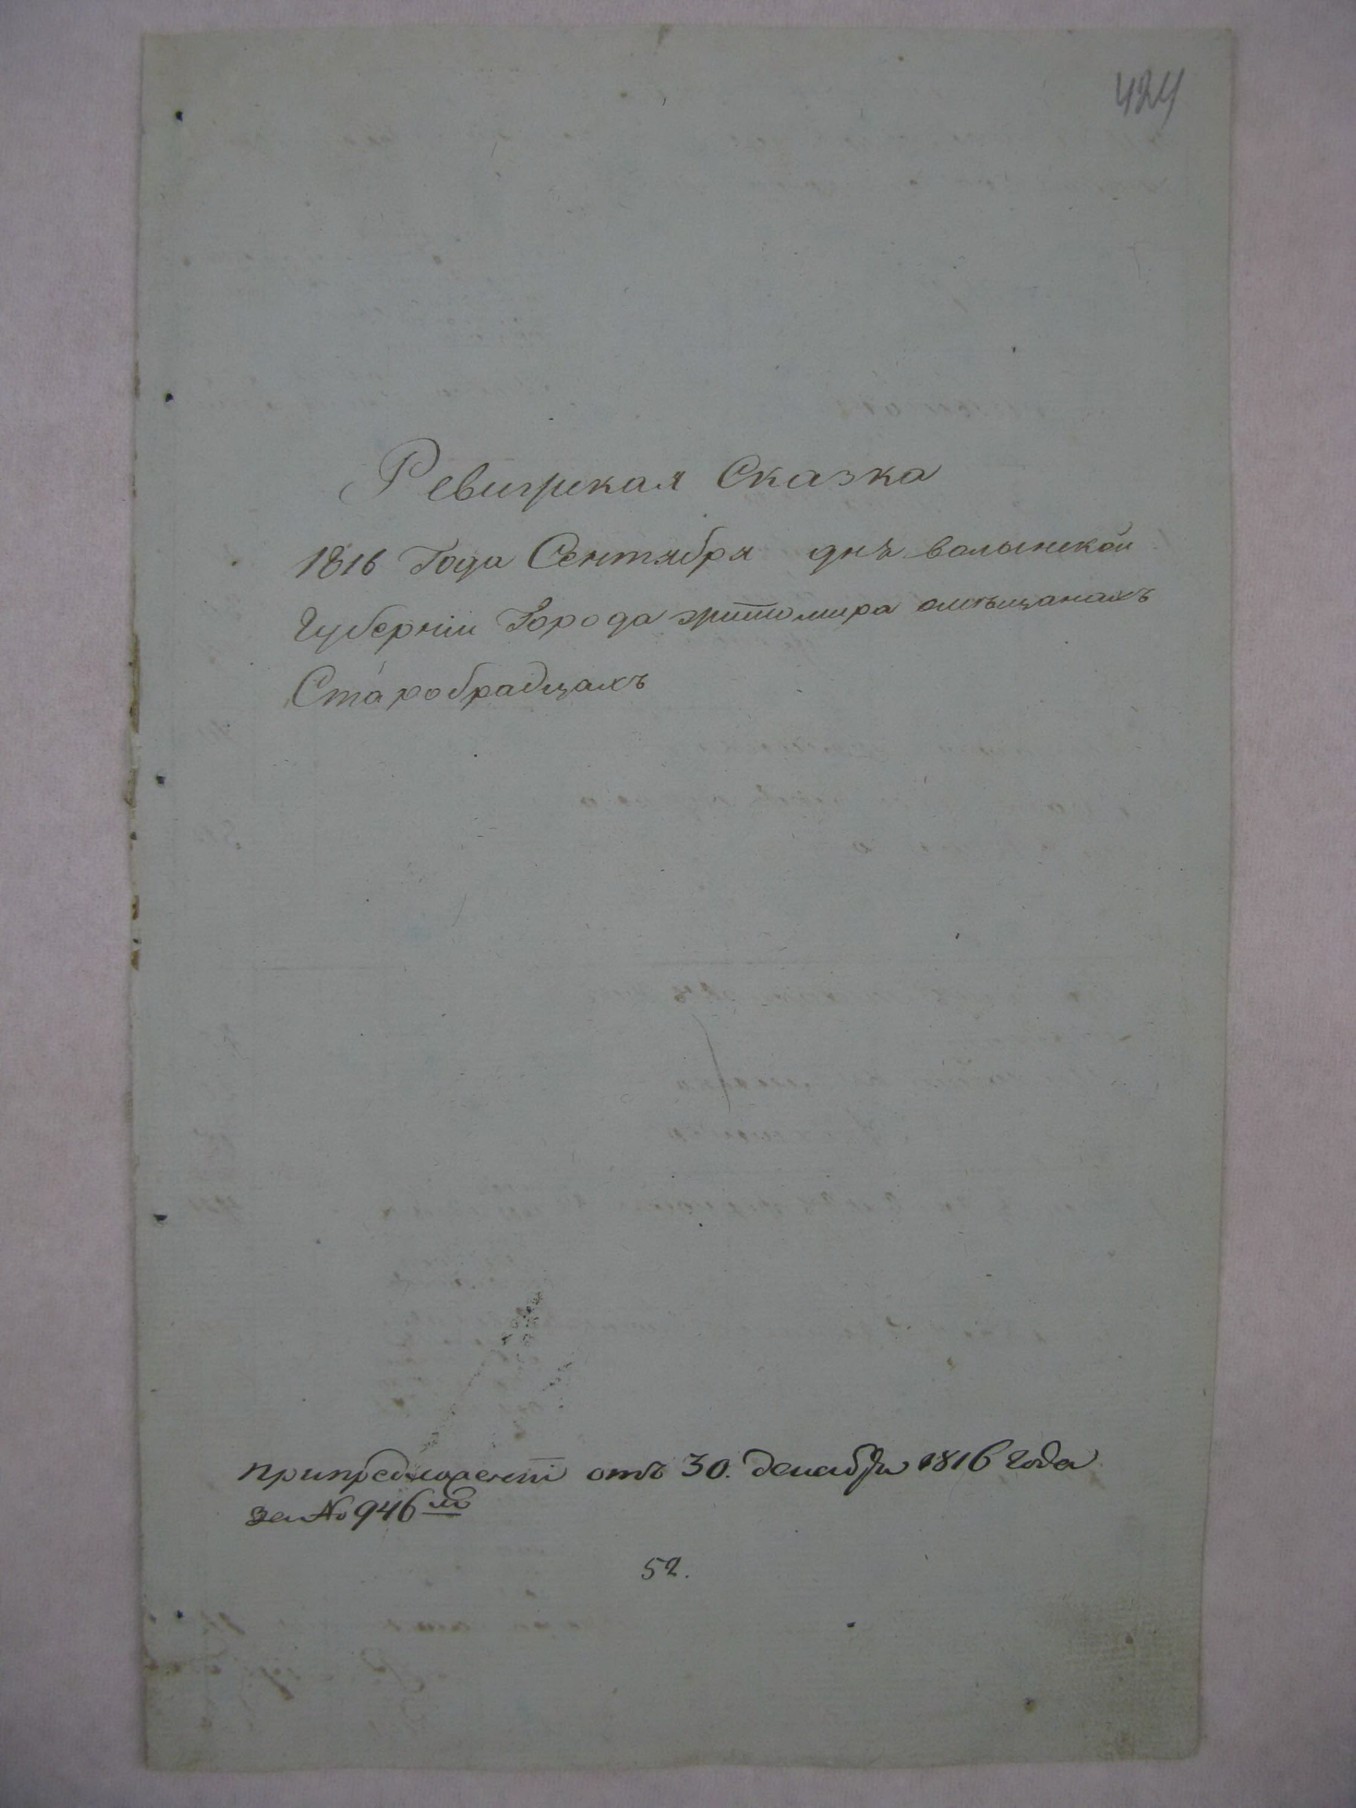 424
Ревизская Сказка
1816 Года Сентября дня волынской
Губернiи Города житомира омещанахъ
Старобрадцахъ
припредложенiи отъ 30. декабря 1816 года
за № 946 м
52.